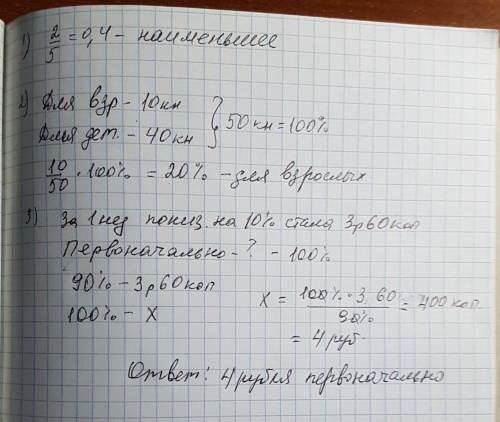 1) 2/5 = 0,4 - наименьшее
2) Для взр - 10кн
Для дет. - 40кн } 50кн = 100%
10/50 · 100% = 20% - для взрослых
3) За 1 нед пониз. на 10% стала 3р60коп
Первоначально - ? - 100%
90% - 3р60коп
100% - х
х = 100% · 3,60 / 90% = 400 коп.
= 4 руб.
Ответ: 4 рубля первоначально